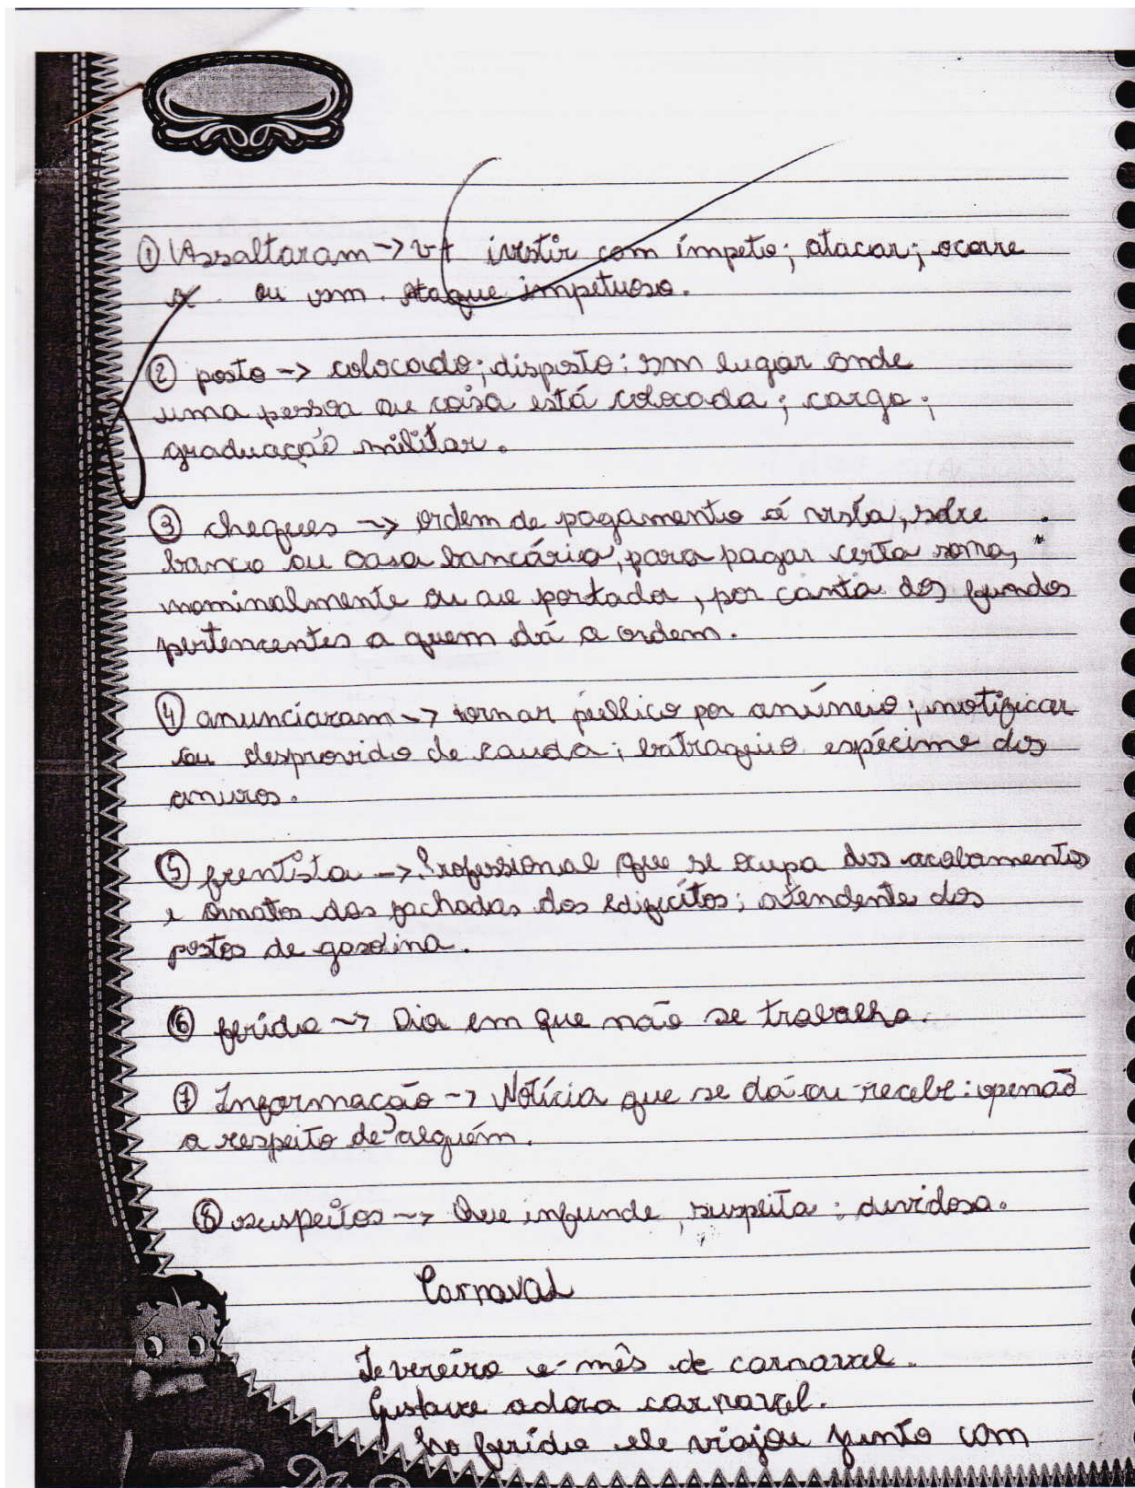 ① Assaltaram → vt invstir com ímpeto; atacar; ocorre
ou vsm. Ataque impetuoso.
② posto → colocado; disposto; sm lugar onde
uma pessoa ou coisa está colocada; cargo;
graduação militar.
③ cheques → ordem de pagamento á vista, sobre
banco ou casa bancário, para pagar certa soma,
nominalmente ou ao portador, por conta dos fundos
pertencentes a quem dá a ordem.
④ anunciaram → tornar público por anúncio; notificar
ou desprovido de cauda; batraquio espécime dos
anuros.
⑤ frentista → Profissional que se ocupa dos acabamentos
e ornatos das fachadas dos edificítos; atendente dos
postos de gasolina.
⑥ ferído → Dia em que não se trabalha.
⑦ Informação → Notícia que se dá ou recebe: openão
a respeito de alguém.
⑧ suspeitos → Que infunde suspeita; duvidosa.
Carnaval
Fevereiro e mês de carnaval.
Gustavo adora carnaval.
No ferído ele viajou junto com